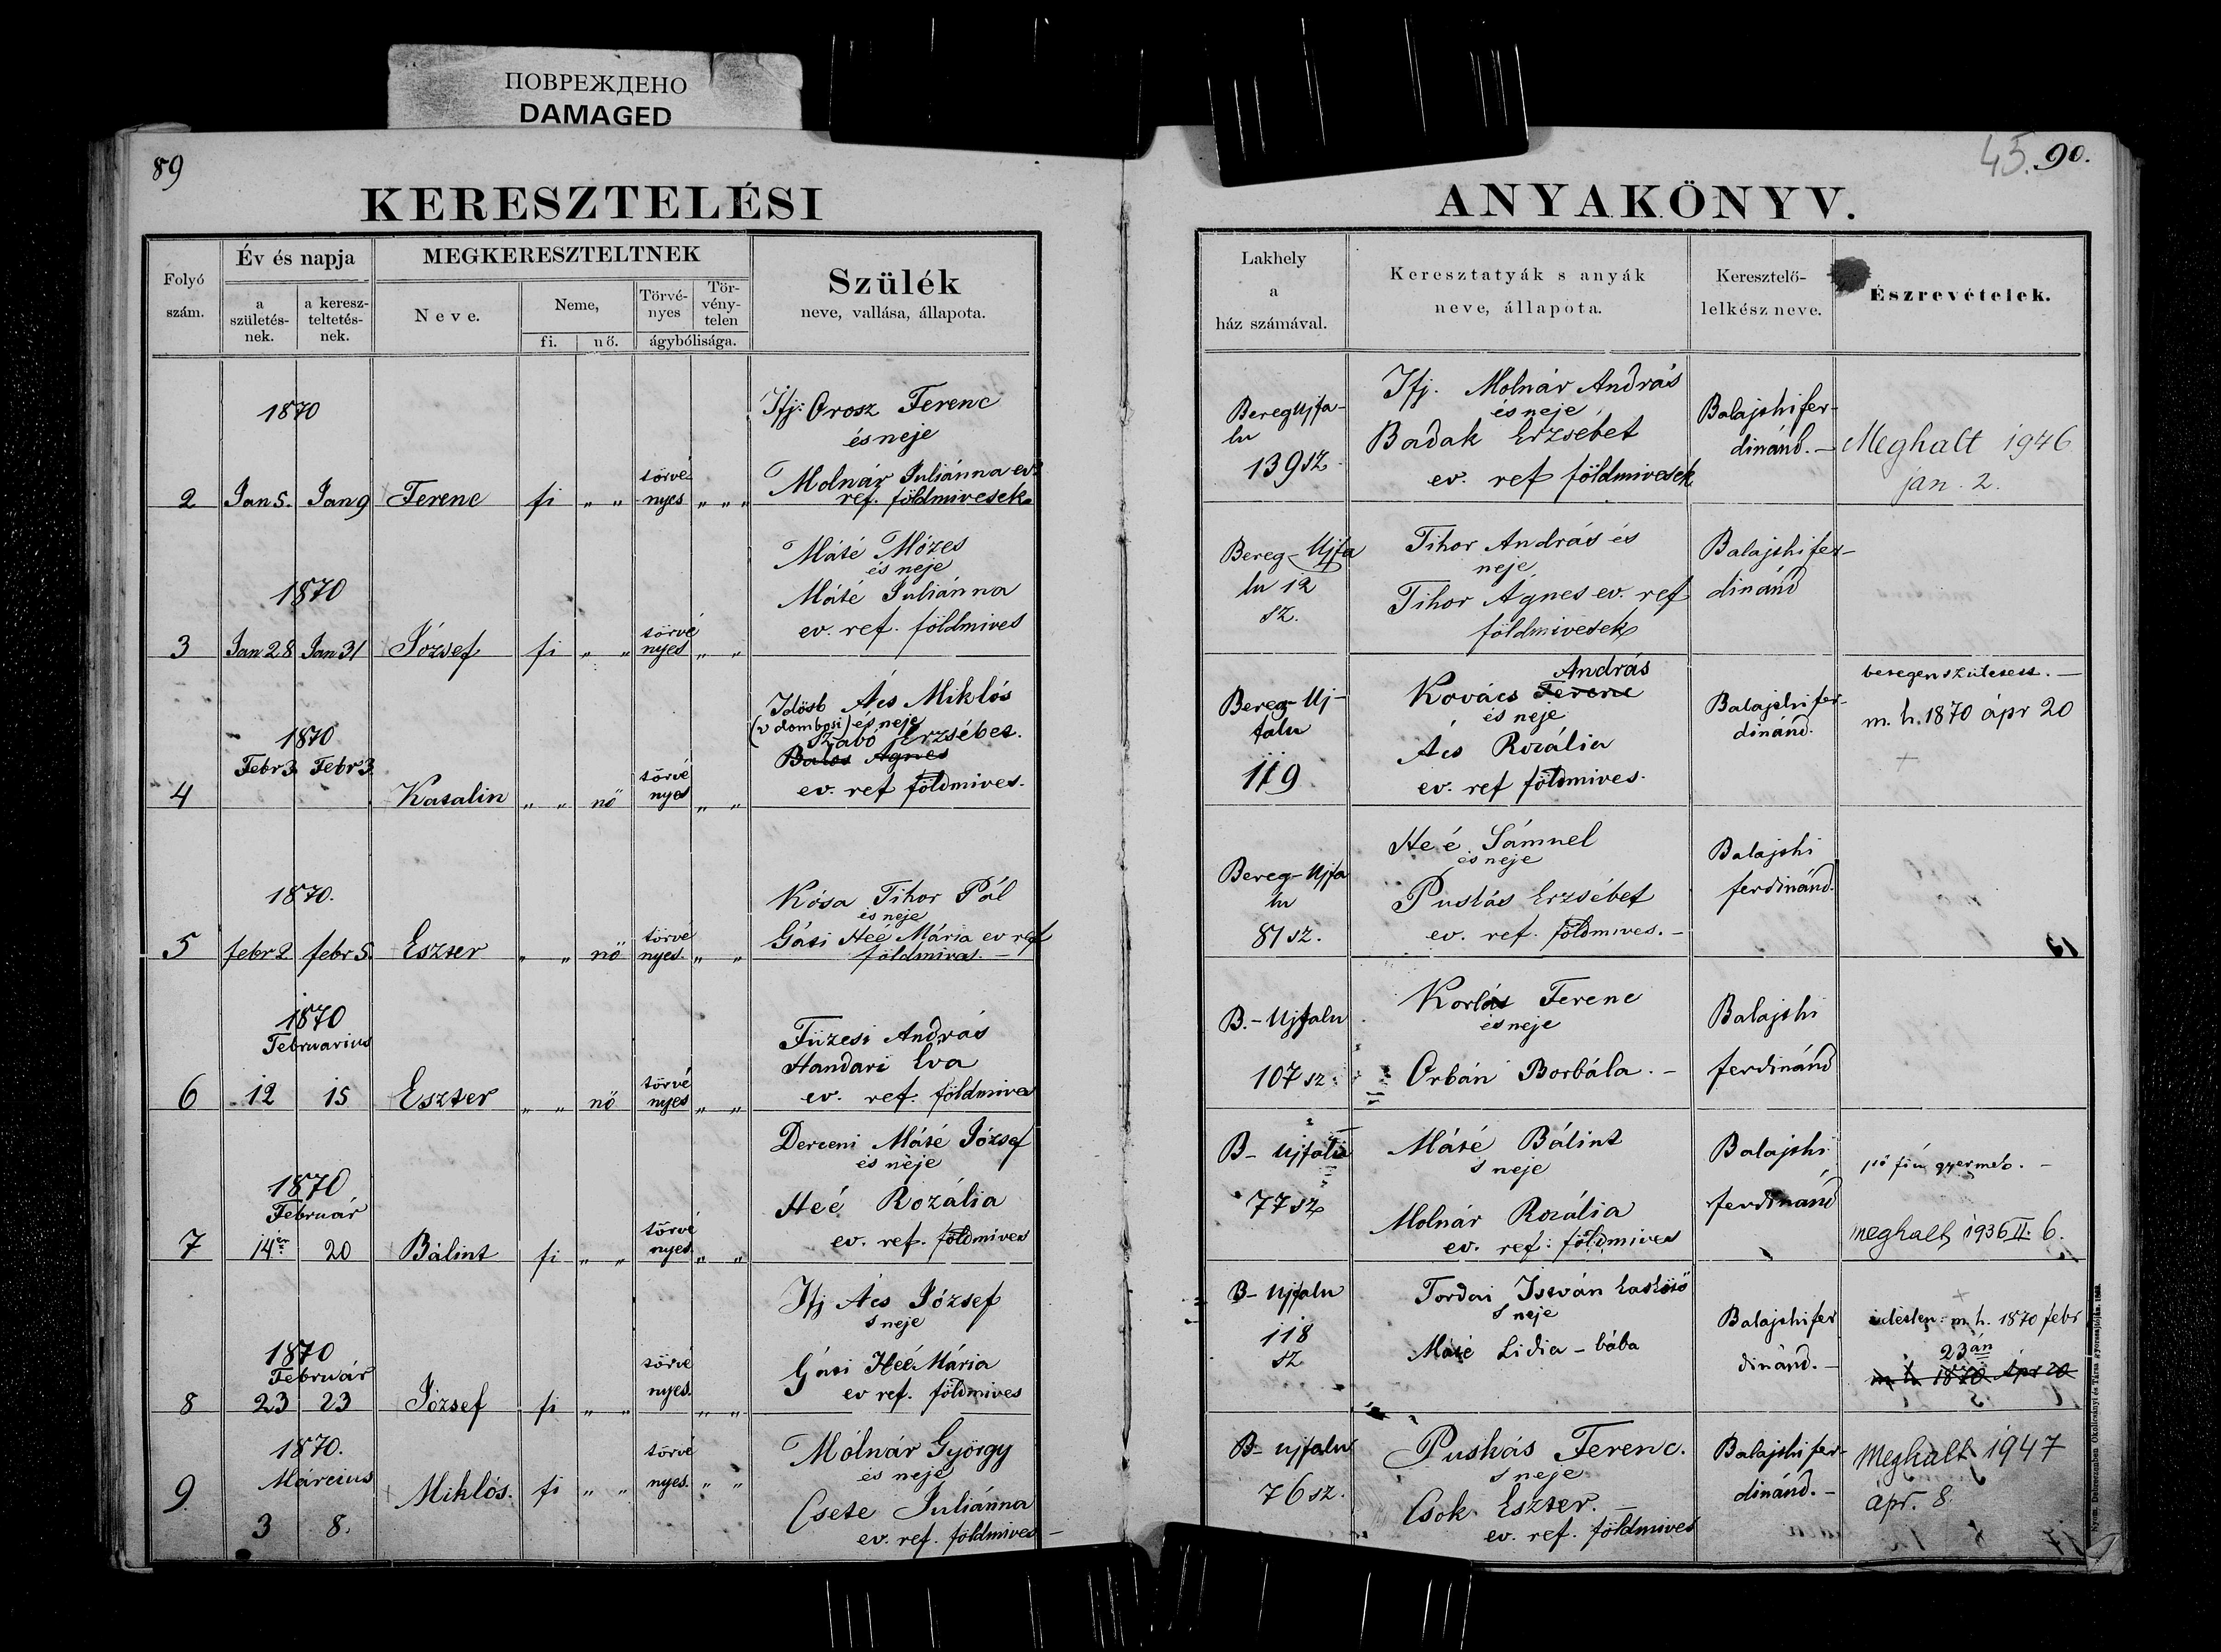 ПОВРЕЖДЕНО
DAMAGED
89
KERESZTELÉSI
Folyó
szám.
Év és napja
a
születés-
nek.
a keresz-
teltetés-
nek.
MEGKERESZTELTNEK
Neve.
Neme,
fi.
nő.
Törvé-
nyes
Tör-
vény-
telen
ágybólisága.
Szülék
neve, vallása, állapota.
45. 90.
ANYAKÖNYV.
Lakhely
a
ház számával.
Keresztatyák s anyák
neve, állapota.
Keresztelő-
lelkész neve.
Észrevételek.
1870
2 Jan 5. Jan 9 Ferenc fi „ „
törvé
nyes „ „ „
Ifj: Orosz Ferenc
és neje
Molnár Juliánna ev.
ref. földmivesek
Bereg Ujfa-
lu
139 sz.
Ifj. Molnár András
és neje
Badak Erzsébet
ev. ref földmivesek
Balajshi fer-
dinánd. –
Meghalt 1946
jan. 2.
1870
3 Jan 28 Jan 31 József fi „ „
törvé
nyes „ „
Máté Mózes
és neje
Máté Juliánna
ev. ref. földmives
Bereg – Ujfa
lu 12
sz.
Tihor András és
neje
Tihor Ágnes ev. ref
földmivesek
Balajshi fer-
dinánd
1870
Febr 3 Febr 3
4 Katalin „ „ nő
törvé
nyes „ „
Idősb Ács Miklós
(v dombosi) és neje
Szabó Erzsébet.
Balos Agnes
ev. ref földmives.
Bereg – Uj-
falu
119
András
Kovács Ferenc
és neje
Ács Rozália
ev. ref földmives.
Balajshi fer-
dinánd.
betegen született. –
m. h. 1870 ápr 20
+
1870.
5 febr 2 febr 5. Eszter „ „ nő
törvé
nyes. „ „
Kósa Tihor Pál
és neje
Gáti Heé Mária ev ref
földmives. –
Bereg – Ujfa
lu
81 sz.
Heé Sámuel
és neje
Puskás Erzsébet
ev. ref. földmives. –
Balajshi
ferdinánd.
1870
Februarius
6 12 15 Eszter „ „ nő
törvé
nyes „ „
Füzesi András
Handari Eva
ev. ref. földmives
B. – Ujfalu
107 sz.
Ferenc
és neje
Orbán Borbála. –
Balajshi
ferdinánd
1870
Február
7 14én 20 Bálint fi „ „
törvé
nyes „ „
Derceni Máté József
és neje
Heé Rozália
ev. ref. földmives
B – Ujfalu
77 sz
Máté Bálint
s neje
Molnár Rozália
ev. ref: földmives
Balajshi
ferdinánd
fiú gyermek. –
meghalt, 1936 II. 6.
1870
Február
8 23 23 József fi „ „
törvé
nyes. „ „
Ifj Ács József
s neje
Gáti Heé Mária
ev ref. földmives
B – Ujfalu
118
sz
Tordai István
s neje
Máté Lidia – bába
Balajshi fer
dinánd. –
+
idétlen. m. h. 1870 febr
23án
m h 1870 Apr 20
1870.
Március
9. 3 8. Miklós. fi „ „
törvé
nyes. „ „
Molnár György
és neje
Csete Juliánna
ev. ref. földmives –
B – ujfalu
76 sz.
Puskás Ferenc.
s neje
Csok Eszter. –
ev. ref. földmives
Balajshi fer-
dinánd. –
Meghalt 1947
ápr. 8.